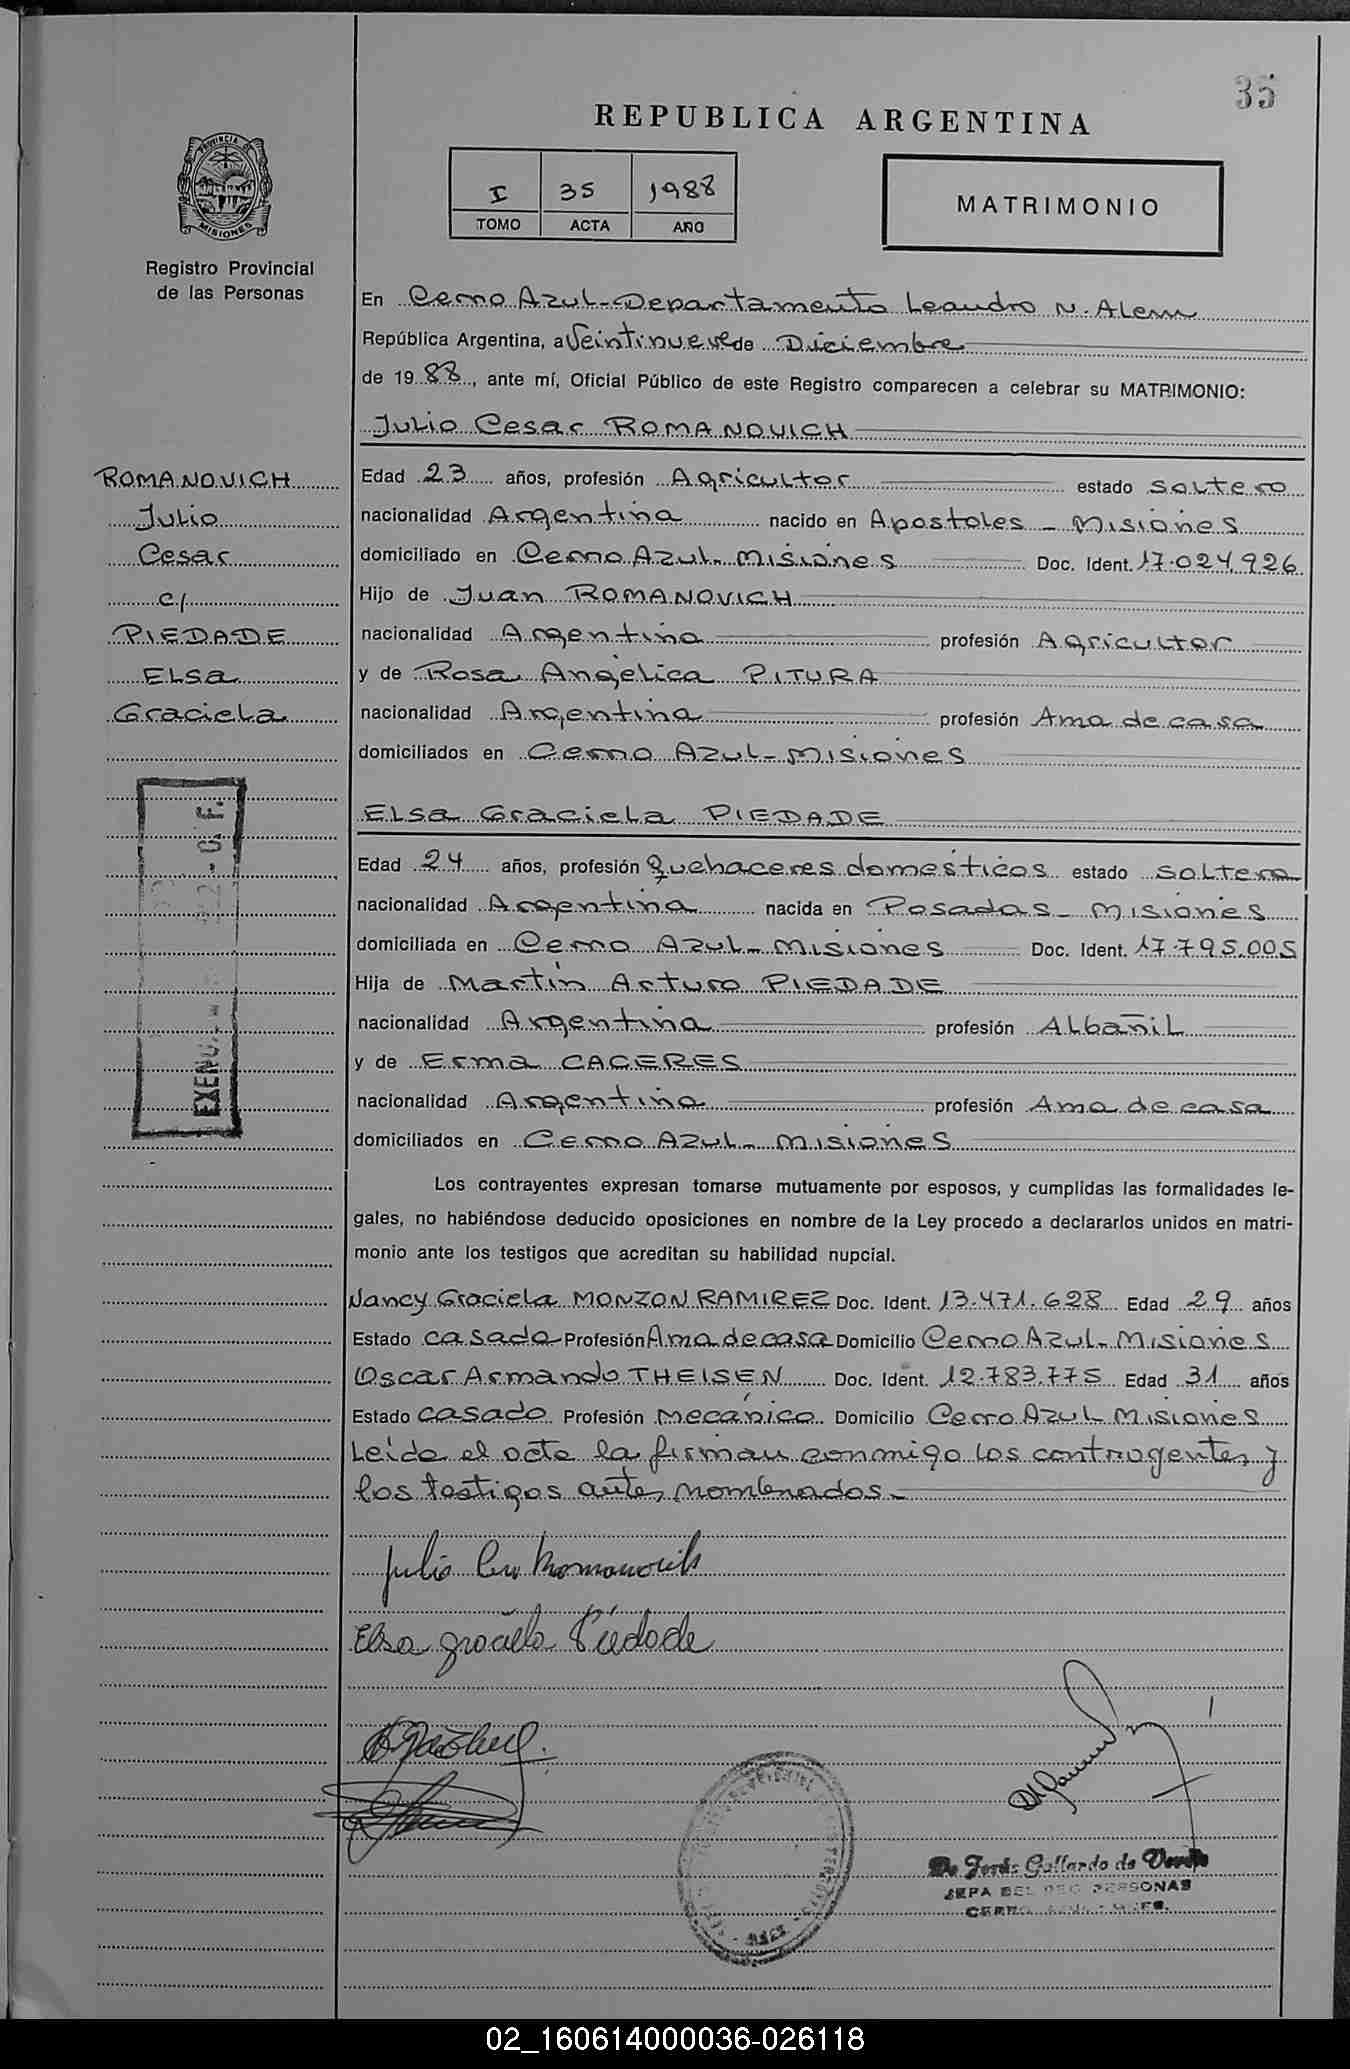 35
REPUBLICA ARGENTINA
PROVINCIA DE
MISIONES
Registro Provincial
de las Personas
I 35 1988
TOMO ACTA AÑO
MATRIMONIO
En Cerro Azul-Departamento Leandro N. Alem
República Argentina, a Veintinueve de Diciembre
de 19 88, ante mí, Oficial Público de este Registro comparecen a celebrar su MATRIMONIO:
Julio Cesar ROMANOVICH
ROMANOVICH
Julio
Cesar
c/
PIEDADE
ELsa
Graciela
Edad 23 años, profesión Agricultor estado soltero
nacionalidad Argentina nacido en Apostoles - Misiones
domiciliado en Cerro Azul-Misiones Doc. Ident. 17.024.926
Hijo de Juan ROMANOVICH
nacionalidad Argentina profesión Agricultor
y de Rosa Angelica PITURA
nacionalidad Argentina profesión Ama de casa
domiciliados en Cerro Azul-Misiones
ELsa Graciela PIEDADE
Edad 24 años, profesión Quehaceres domesticos estado soltera
nacionalidad Argentina nacida en Posadas - Misiones
domiciliada en Cerro Azul-Misiones Doc. Ident. 17.795.005
Hija de Martin Arturo PIEDADE
nacionalidad Argentina profesión Albañil
y de Erma CACERES
nacionalidad Argentina profesión Ama de casa
domiciliados en Cerro Azul-Misiones
Los contrayentes expresan tomarse mutuamente por esposos, y cumplidas las formalidades le-
gales, no habiéndose deducido oposiciones en nombre de la Ley procedo a declararlos unidos en matri-
monio ante los testigos que acreditan su habilidad nupcial.
Nancy Graciela MONZON RAMIREZ Doc. Ident. 13.471.628 Edad 29 años
Estado casada Profesión Ama de casa Domicilio Cerro Azul-Misiones
Oscar Armando THEISEN Doc. Ident. 12.783.775 Edad 31 años
Estado casado Profesión mecánico Domicilio Cerro Azul Misiones
Leída el acta la firman conmigo los contrayentes y
los testigos antes nombrados.-
Julio Romanovich
Elsa graciela Piedade
Gallardo de
PERSONAS
02_160614000036-026118